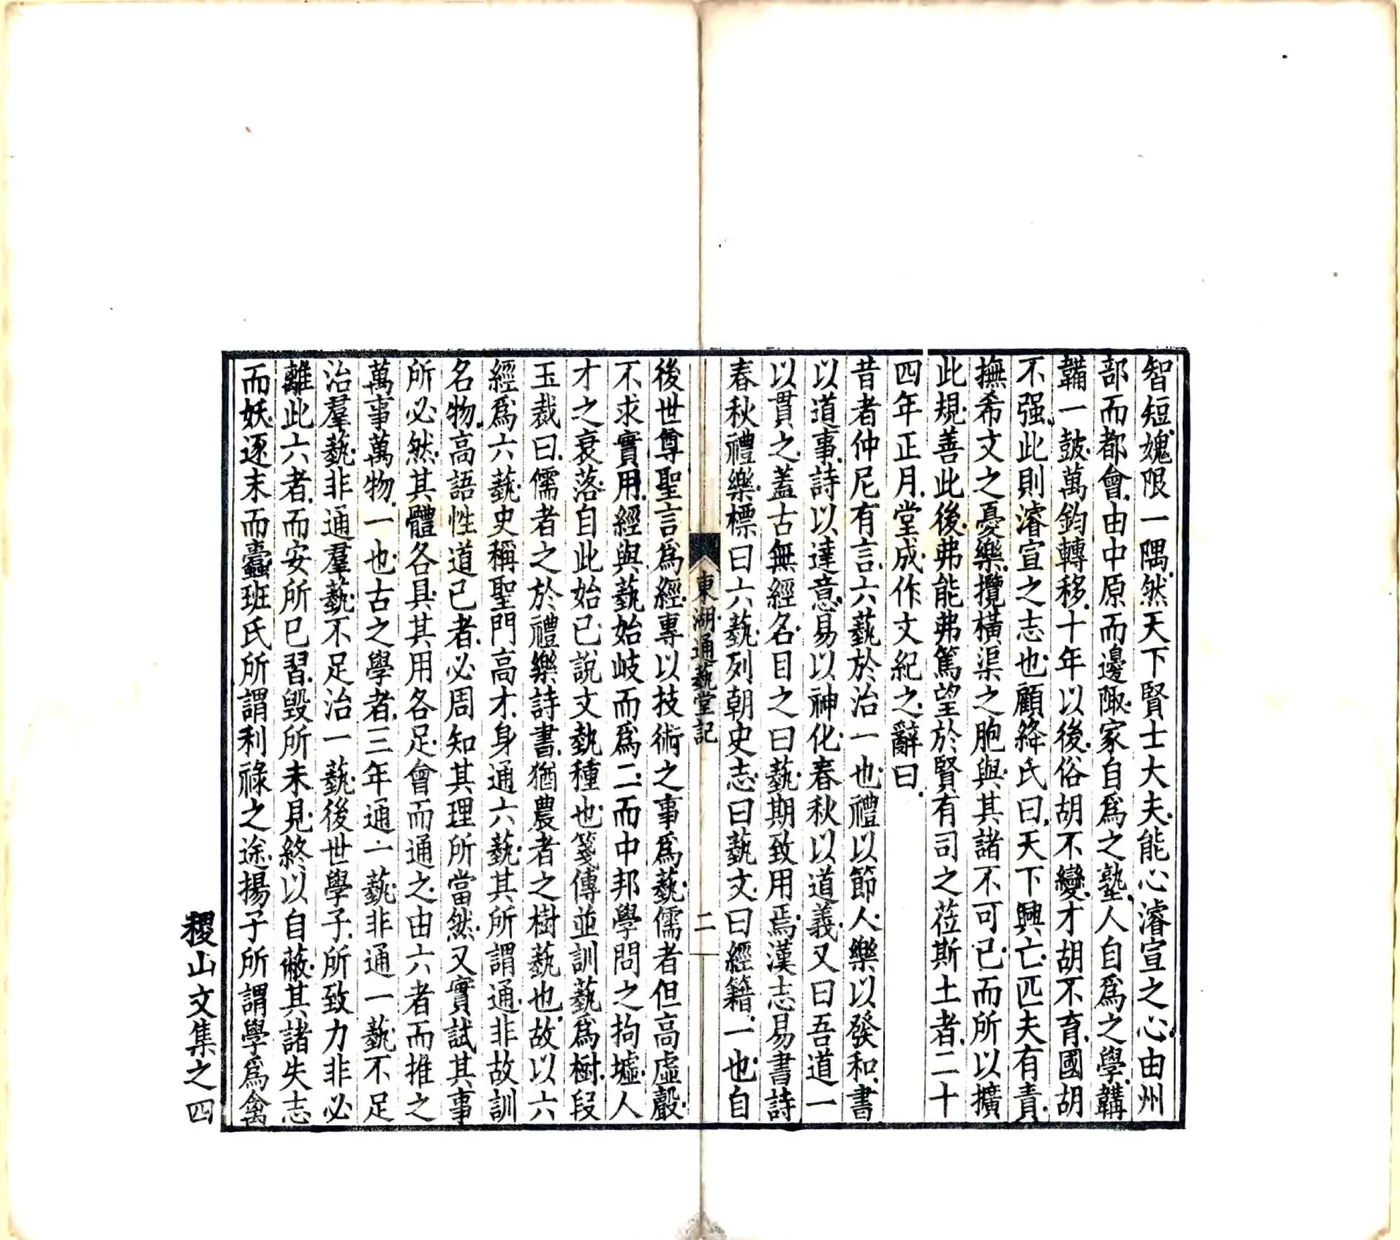 智短媿限一隅然天下賢士大夫能心濬宣之心由州
部而都會由中原而邊陬家自爲之塾人自爲之學鞲
鞴一鼓萬鈞轉移十年以後俗胡不變才胡不育國胡
不强此則濬宣之志也顧絳氏曰天下興亡匹夫有責
撫希文之憂樂攬橫渠之胞與其諸不可已而所以擴
此規善此後弗能弗篤望於賢有司之莅斯土者二十
四年正月堂成作文紀之辭曰
昔者仲尼有言六藝於治一也禮以節人樂以發和書
以道事詩以達意易以神化春秋以道義又曰吾道一
以貫之蓋古無經名目之曰藝期致用焉漢志易書詩
春秋禮樂標曰六藝列朝史志曰藝文曰經籍一也自
東湖通藝堂記
二
後世尊聖言爲經專以技術之事爲藝儒者但高虛嚴
不求實用經與藝始歧而爲二而中邦學問之拘墟人
才之衰落自此始已說文埶種也箋傳並訓藝爲樹段
玉裁曰儒者之於禮樂詩書猶農者之樹藝也故以六
經爲六藝史稱聖門高才身通六藝其所謂通非故訓
名物高語性道已者必周知其理所當然又實試其事
所必然其體各具其用各足會而通之由六者而推之
萬事萬物一也古之學者三年通一藝非通一藝不足
治羣藝非通羣藝不足治一藝後世學子所致力非必
離此六者而安所已習毀所未見終以自蔽其諸失志
而妖逐末而蠹班氏所謂利祿之途揚子所謂學爲禽
稷山文集之四